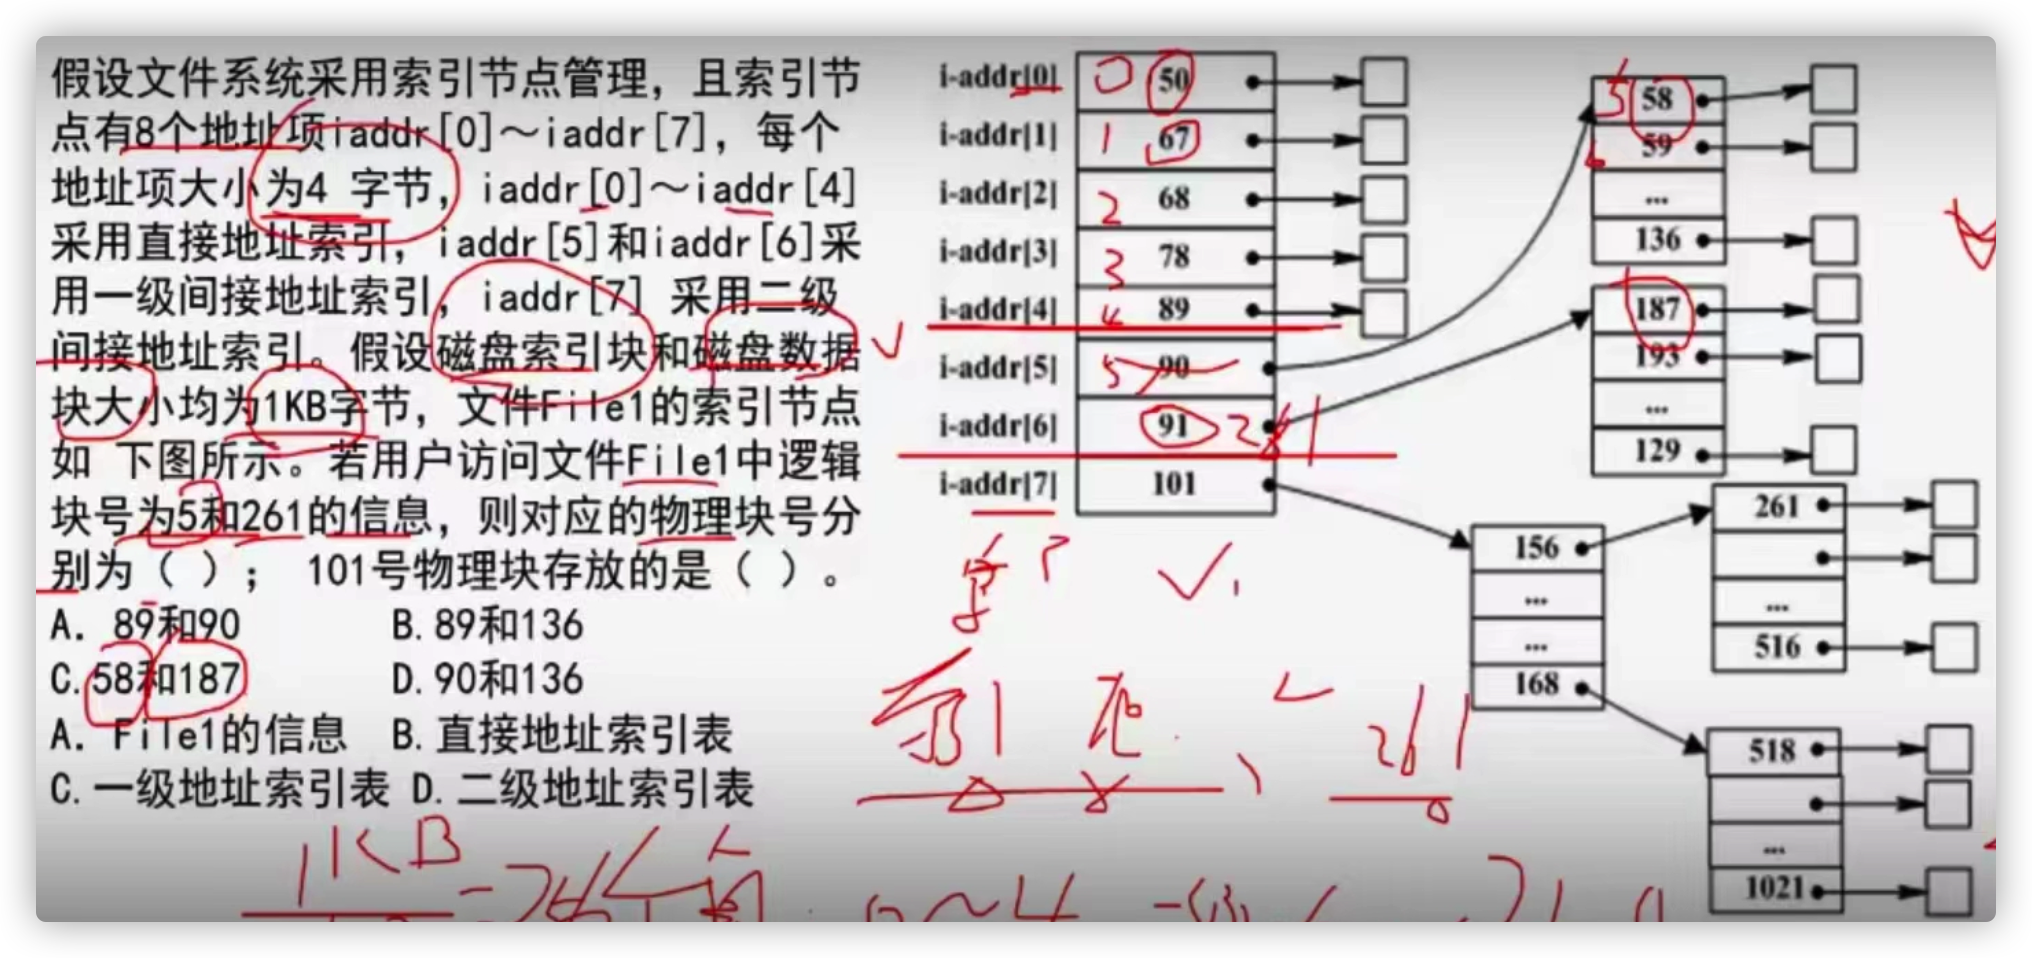 假设文件系统采用索引节点管理，且索引节
点有8个地址项iaddr[0]～iaddr[7]，每个
地址项大小为4 字节，iaddr[0]～iaddr[4]
采用直接地址索引，iaddr[5]和iaddr[6]采
用一级间接地址索引，iaddr[7] 采用二级
间接地址索引。假设磁盘索引块和磁盘数据
块大小均为1KB字节，文件File1的索引节点
如 下图所示。若用户访问文件File1中逻辑
块号为5和261的信息，则对应的物理块号分
别为（ ）； 101号物理块存放的是（ ）。
A. 89和90 B.89和136
C.58和187 D.90和136
A. File1的信息 B.直接地址索引表
C.一级地址索引表 D.二级地址索引表
i-addr[0] 0 50
i-addr[1] 1 67
i-addr[2] 2 68
i-addr[3] 3 78
i-addr[4] 4 89
i-addr[5] 5 90
i-addr[6] 91 261
i-addr[7] 101
5 58
6 59
...
136
187
193
...
129
156
...
...
168
261
...
516
518
...
1021
261
1KB